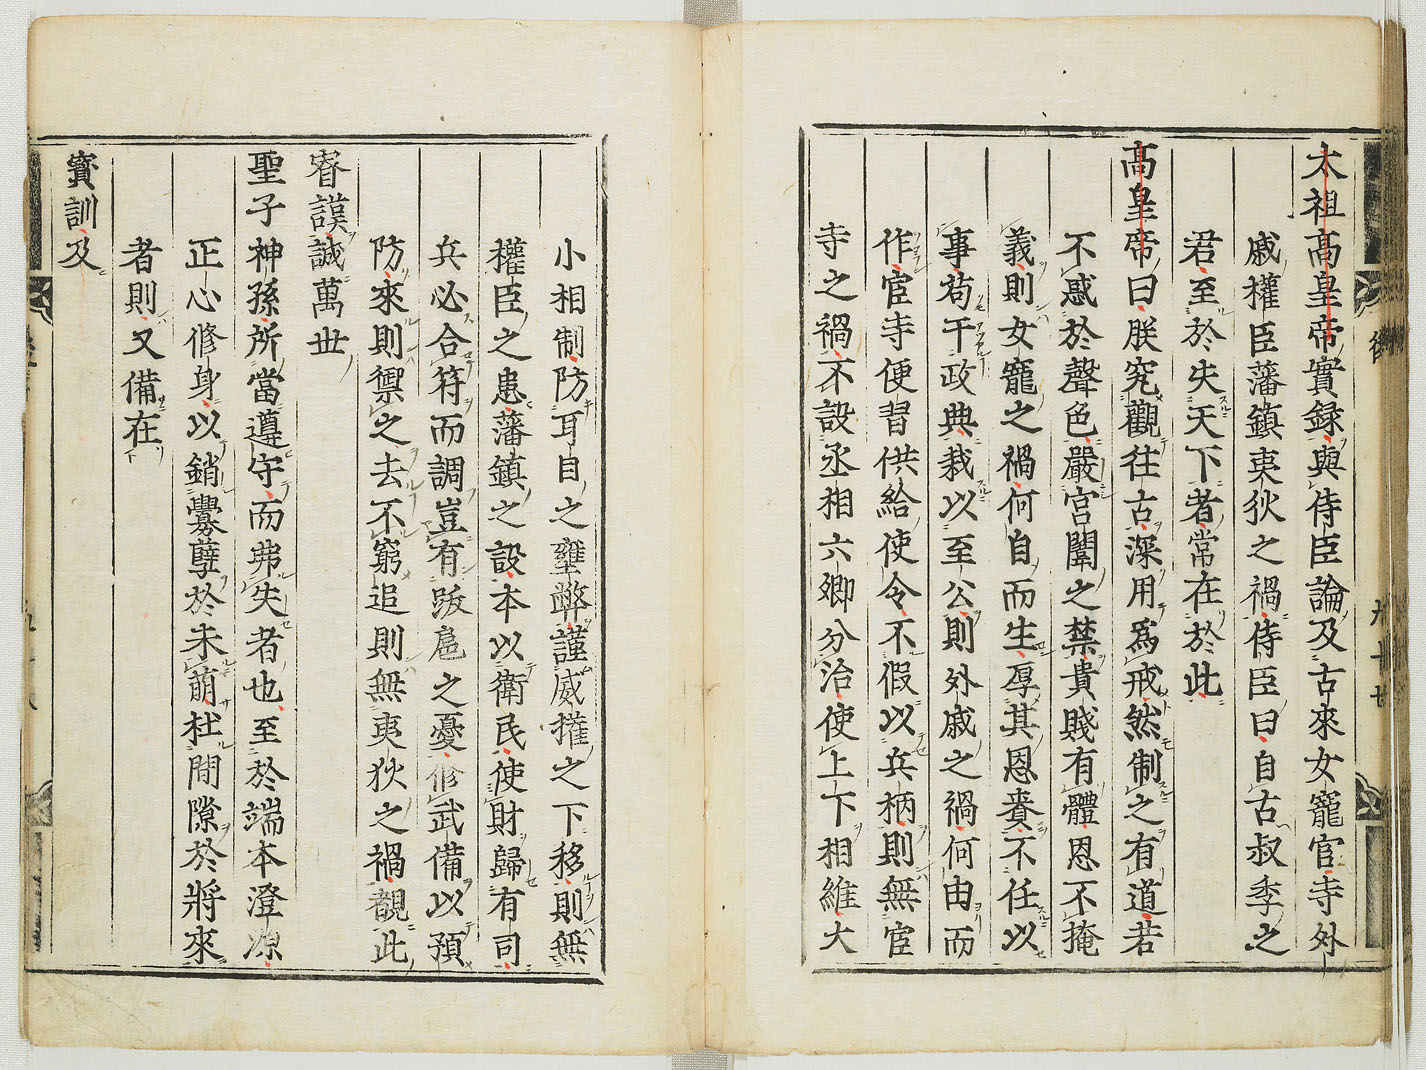 太祖髙皇帝實録與侍臣論及古來女寵宦寺外
戚權臣藩鎮夷狄之禍侍臣曰自古叔季之
君至於失天下者常在於此
髙皇帝曰朕究觀往古深用爲戒然制之有道若
不惑於聲色嚴宮闈之禁貴賤有體恩不掩
義則女寵之禍何自而生厚其恩賚不任以
事苟干政典裁以至公則外戚之禍何由而
作宦寺便習供給使令不假以兵柄則無宦
寺之禍不設丞相六卿分治使上下相維大
小相制防耳目之壅蔽謹威權之下移則無
權臣之患藩鎮之設本以衛民使財歸有司
兵必合符而調豈有跋扈之憂修武備以預
防來則禦之去不窮追則無夷狄之禍覩此
睿謨誠萬世
聖子神孫所當遵守而弗失者也至於端本澄源
正心修身以銷釁孽於未萌杜間隙於將來
者則又備在
寳訓及